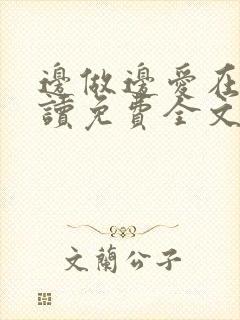 邊做邊愛在
讀免費全文
文蘭公子